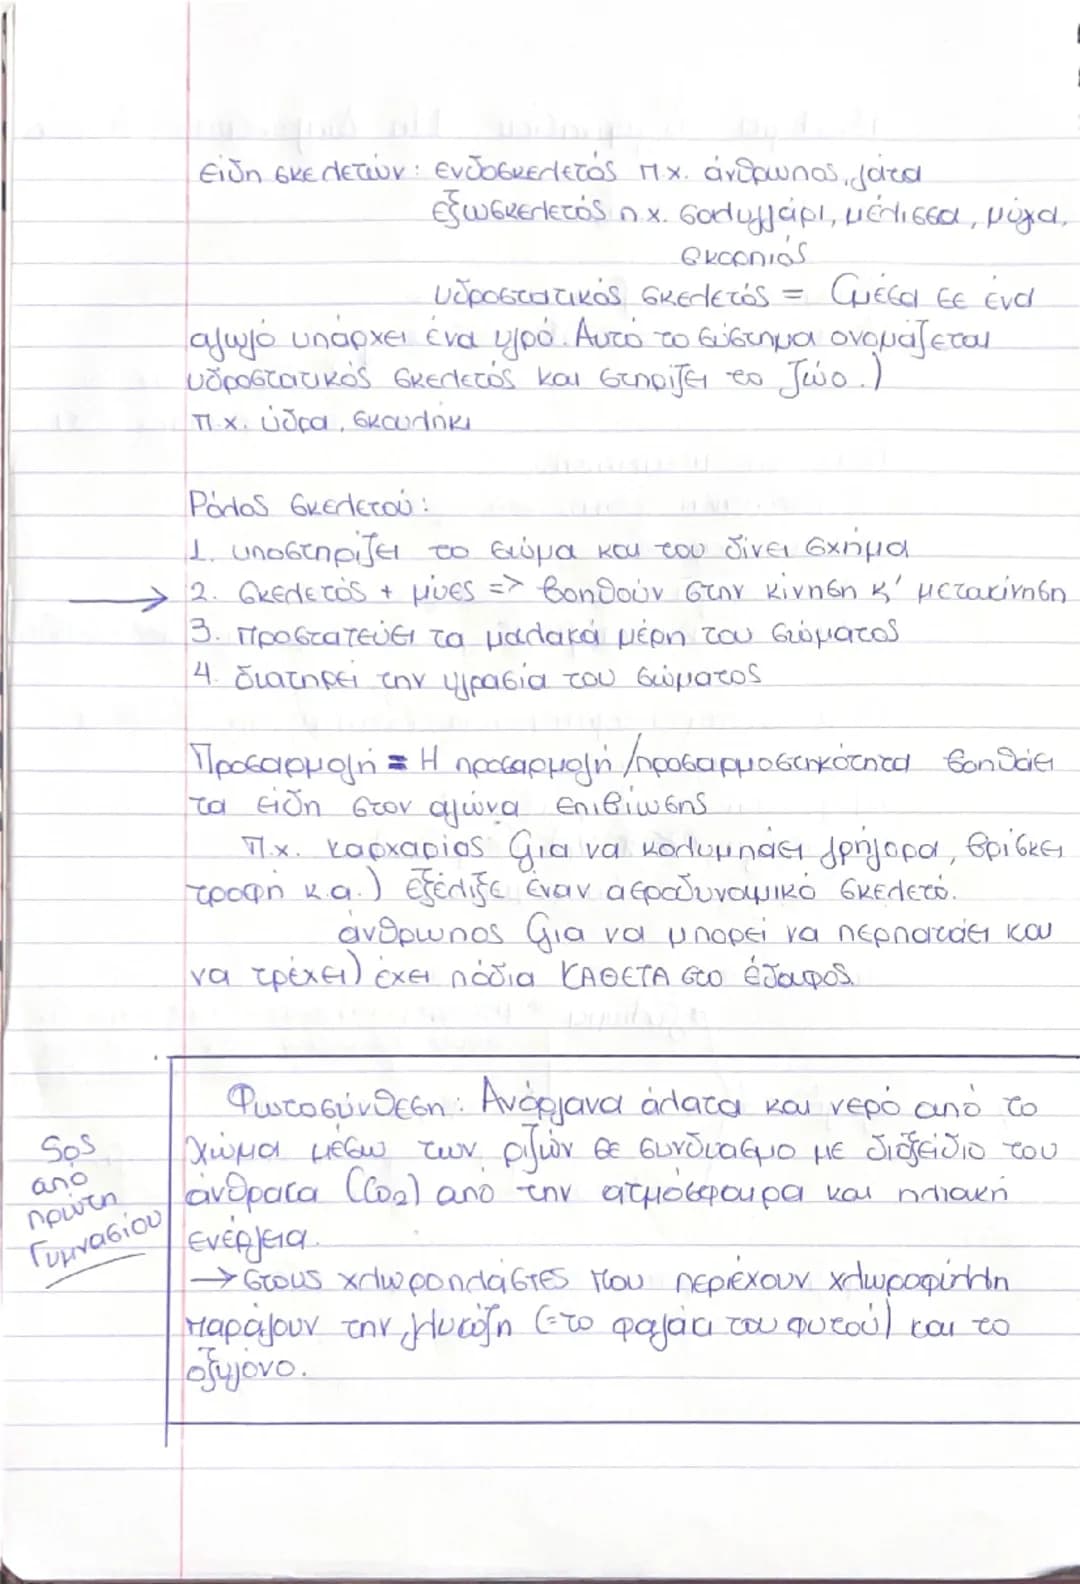 Είδη σκελετών: ενδοσκελετός π.χ. άνθρωπος, γάτα
εξωσκελετός π.χ. σαλιγγάρι, μέλισσα, μύγα,
σκορπιός
υδροστατικός σκελετός = (μέσα σε ένα
αγωγό υπάρχει ένα υγρό. Αυτό το σύστημα ονομάζεται
υδροστατικός σκελετός και στηρίζει το ζώο.)
π.χ. ύδρα, σκουλήκι
Ρόλος σκελετού:
1. υποστηρίζει το σώμα και του δίνει σχήμα
→ 2. σκελετός + μύες => βοηθούν στην κίνηση κ' μετακίνηση
3. προστατεύει τα μαλακά μέρη του σώματος
4. διατηρεί την υγρασία του σώματος
Προσαρμογή = Η προσαρμογή/προσαρμοστικότητα βοηθάει
τα είδη στον αγώνα επιβίωσης
π.χ. καρχαρίας (για να κολυμπάει γρήγορα, βρίσκει
τροφή κ.α.) εξέλιξε έναν αεροδυναμικό σκελετό.
άνθρωπος (για να μπορεί να περπατάει και
να τρέχει) έχει πόδια ΚΑΘΕΤΑ στο έδαφος.
Φωτοσύνθεση: Ανόργανα άλατα και νερό από το
χώμα μέσω των ριζών σε συνδυασμό με διοξείδιο του
άνθρακα (CO2) από την ατμόσφαιρα και ηλιακή
ενέργεια.
→ στους χλωροπλάστες που περιέχουν χλωροφύλλη
παράγουν την γλυκόζη (=το φαγάκι του φυτού) και το
οξυγόνο.
SOS
από
πρώτη
Γυμνασίου